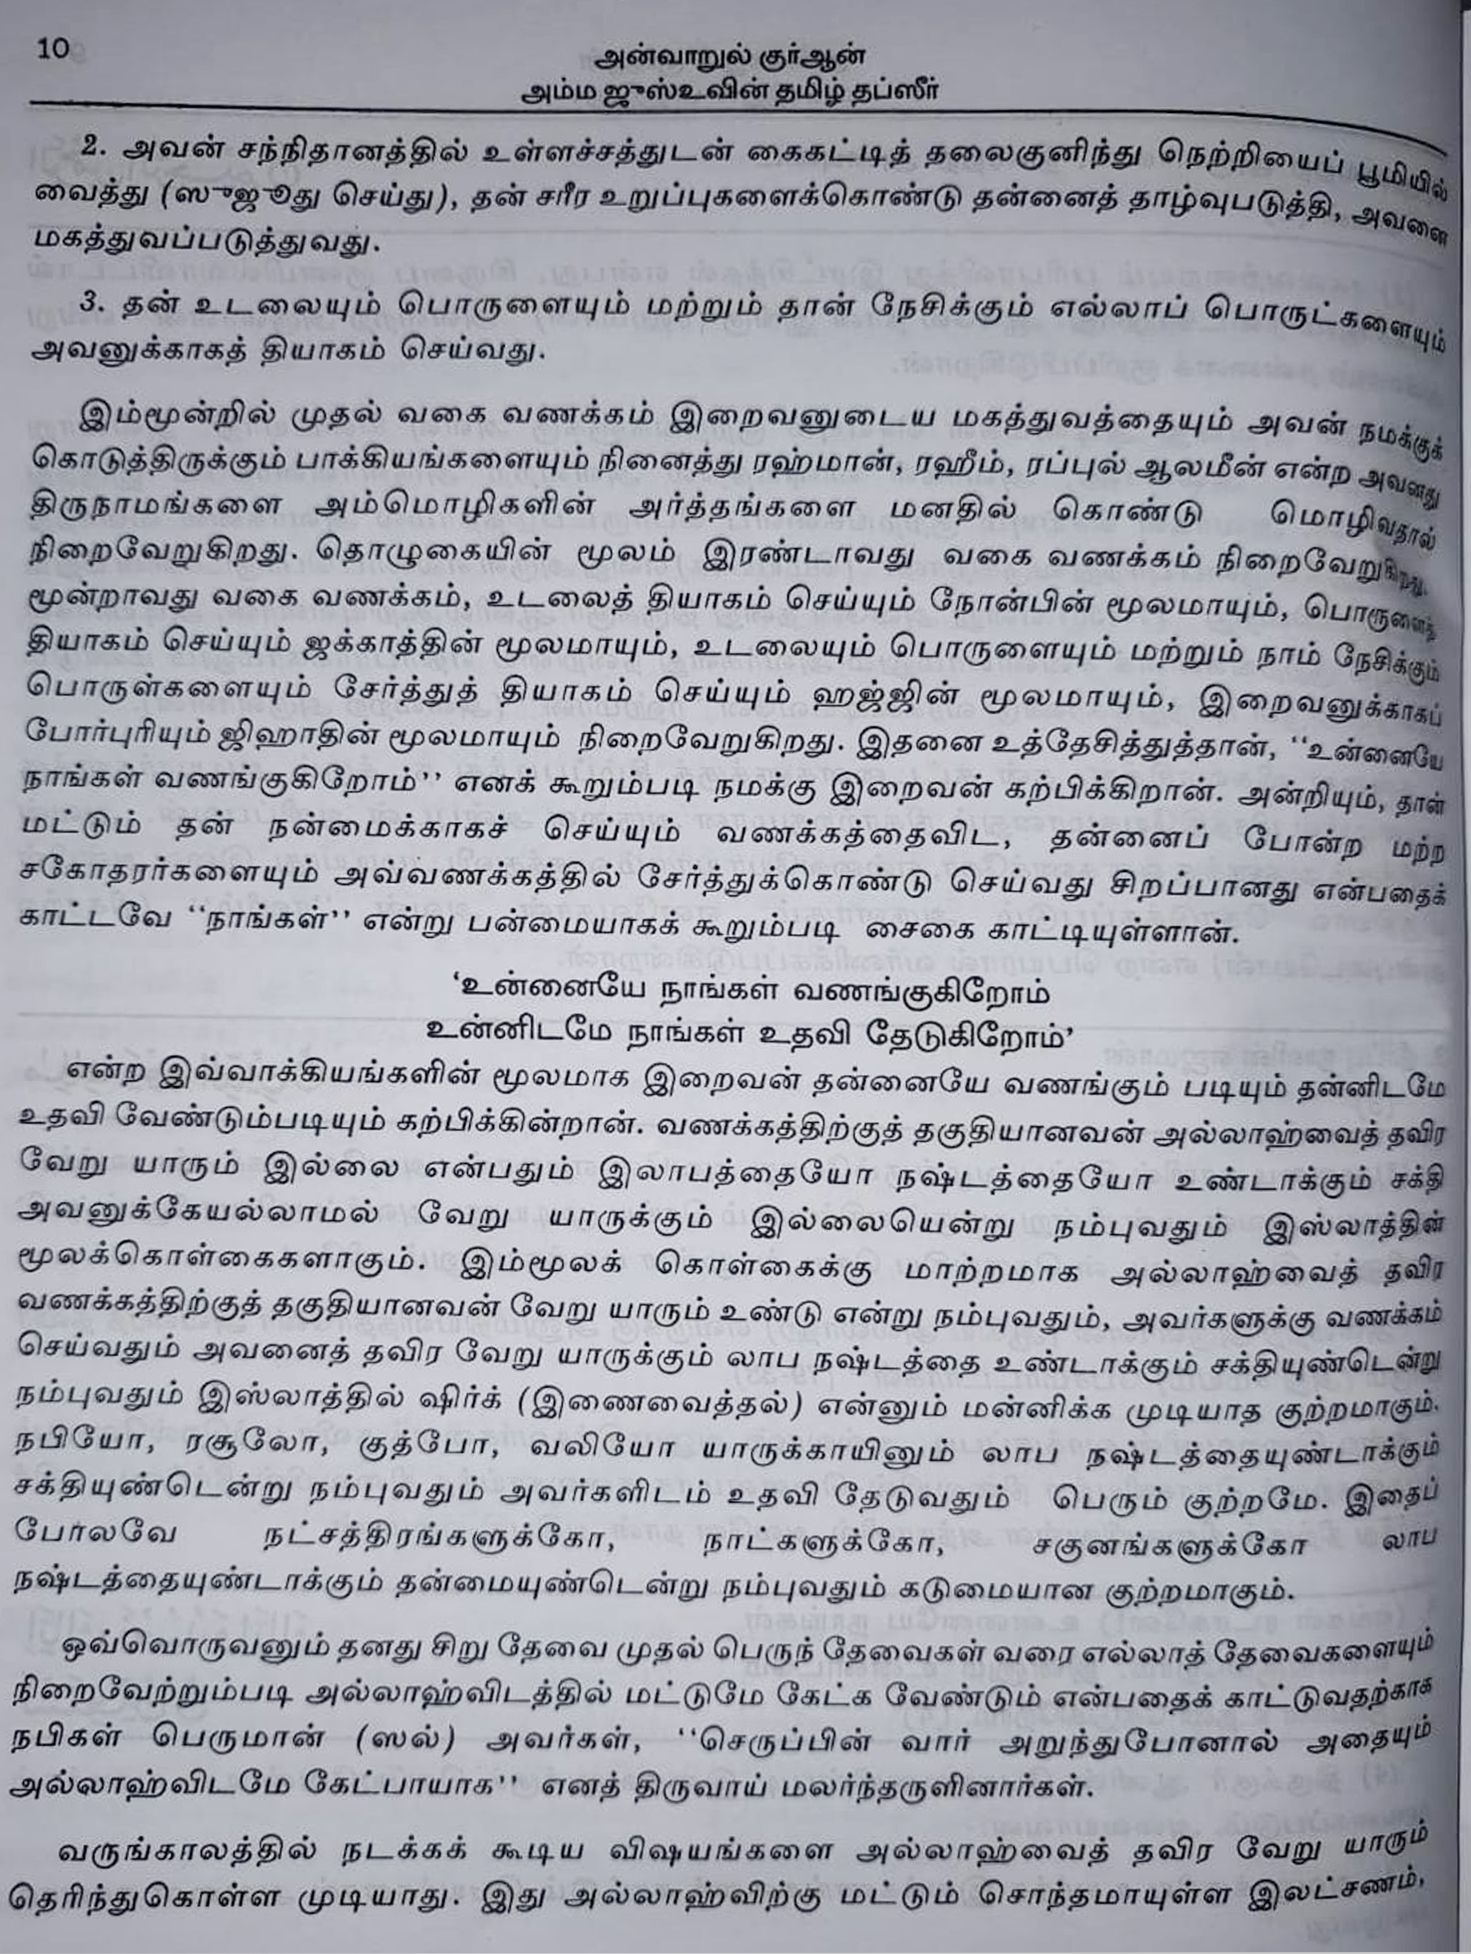 10
அன்வாறுல் குர்ஆன்
அம்ம ஜுஸ்உவின் தமிழ் தப்ஸீர்
2. அவன் சந்நிதானத்தில் உள்ளச்சத்துடன் கைகட்டித் தலைகுனிந்து நெற்றியைப் பூமியில்
வைத்து (ஸுஜூது செய்து), தன் சரீர உறுப்புகளைக்கொண்டு தன்னைத் தாழ்வுபடுத்தி, அவனை
மகத்துவப்படுத்துவது.
3. தன் உடலையும் பொருளையும் மற்றும் தான் நேசிக்கும் எல்லாப் பொருட்களையும்
அவனுக்காகத் தியாகம் செய்வது.
இம்மூன்றில் முதல் வகை வணக்கம் இறைவனுடைய மகத்துவத்தையும் அவன் நமக்குக்
கொடுத்திருக்கும் பாக்கியங்களையும் நினைத்து ரஹ்மான், ரஹீம், ரப்புல் ஆலமீன் என்ற அவனது
திருநாமங்களை அம்மொழிகளின் அர்த்தங்களை மனதில் கொண்டு மொழிவதால்
நிறைவேறுகிறது. தொழுகையின் மூலம் இரண்டாவது வகை வணக்கம் நிறைவேறுகிறது.
மூன்றாவது வகை வணக்கம், உடலைத் தியாகம் செய்யும் நோன்பின் மூலமாயும், பொருளைத்
தியாகம் செய்யும் ஜக்காத்தின் மூலமாயும், உடலையும் பொருளையும் மற்றும் நாம் நேசிக்கும்
பொருள்களையும் சேர்த்துத் தியாகம் செய்யும் ஹஜ்ஜின் மூலமாயும், இறைவனுக்காகப்
போர்புரியும் ஜிஹாதின் மூலமாயும் நிறைவேறுகிறது. இதனை உத்தேசித்துத்தான், ‘‘உன்னையே
நாங்கள் வணங்குகிறோம்’’ எனக் கூறும்படி நமக்கு இறைவன் கற்பிக்கிறான். அன்றியும், தான்
மட்டும் தன் நன்மைக்காகச் செய்யும் வணக்கத்தைவிட, தன்னைப் போன்ற மற்ற
சகோதரர்களையும் அவ்வணக்கத்தில் சேர்த்துக்கொண்டு செய்வது சிறப்பானது என்பதைக்
காட்டவே ‘‘நாங்கள்’’ என்று பன்மையாகக் கூறும்படி சைகை காட்டியுள்ளான்.
‘உன்னையே நாங்கள் வணங்குகிறோம்
உன்னிடமே நாங்கள் உதவி தேடுகிறோம்’
என்ற இவ்வாக்கியங்களின் மூலமாக இறைவன் தன்னையே வணங்கும் படியும் தன்னிடமே
உதவி வேண்டும்படியும் கற்பிக்கின்றான். வணக்கத்திற்குத் தகுதியானவன் அல்லாஹ்வைத் தவிர
வேறு யாரும் இல்லை என்பதும் இலாபத்தையோ நஷ்டத்தையோ உண்டாக்கும் சக்தி
அவனுக்கேயல்லாமல் வேறு யாருக்கும் இல்லையென்று நம்புவதும் இஸ்லாத்தின்
மூலக்கொள்கைகளாகும். இம்மூலக் கொள்கைக்கு மாற்றமாக அல்லாஹ்வைத் தவிர
வணக்கத்திற்குத் தகுதியானவன் வேறு யாரும் உண்டு என்று நம்புவதும், அவர்களுக்கு வணக்கம்
செய்வதும் அவனைத் தவிர வேறு யாருக்கும் லாப நஷ்டத்தை உண்டாக்கும் சக்தியுண்டென்று
நம்புவதும் இஸ்லாத்தில் ஷிர்க் (இணைவைத்தல்) என்னும் மன்னிக்க முடியாத குற்றமாகும்.
நபியோ, ரசூலோ, குத்போ, வலியோ யாருக்காயினும் லாப நஷ்டத்தையுண்டாக்கும்
சக்தியுண்டென்று நம்புவதும் அவர்களிடம் உதவி தேடுவதும் பெரும் குற்றமே. இதைப்
போலவே நட்சத்திரங்களுக்கோ, நாட்களுக்கோ, சகுனங்களுக்கோ லாப
நஷ்டத்தையுண்டாக்கும் தன்மையுண்டென்று நம்புவதும் கடுமையான குற்றமாகும்.
ஒவ்வொருவனும் தனது சிறு தேவை முதல் பெருந் தேவைகள் வரை எல்லாத் தேவைகளையும்
நிறைவேற்றும்படி அல்லாஹ்விடத்தில் மட்டுமே கேட்க வேண்டும் என்பதைக் காட்டுவதற்காக
நபிகள் பெருமான் (ஸல்) அவர்கள், ‘‘செருப்பின் வார் அறுந்துபோனால் அதையும்
அல்லாஹ்விடமே கேட்பாயாக’’ எனத் திருவாய் மலர்ந்தருளினார்கள்.
வருங்காலத்தில் நடக்கக் கூடிய விஷயங்களை அல்லாஹ்வைத் தவிர வேறு யாரும்
தெரிந்துகொள்ள முடியாது. இது அல்லாஹ்விற்கு மட்டும் சொந்தமாயுள்ள இலட்சணம்,